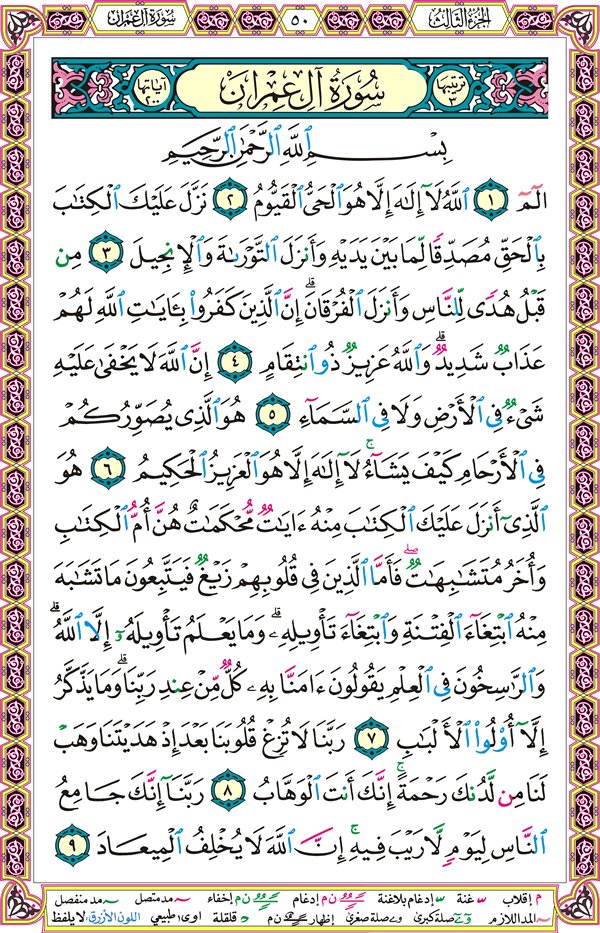 سُورَةُ آلِ عِمْرَانَ ٥٠ الجُزْءُ الثَّالِثُ
ترتيبها ٣ سُورَةُ آلِ عِمْرَانَ آياتها ٢٠٠
بِسْمِ ٱللَّهِ ٱلرَّحْمَٰنِ ٱلرَّحِيمِ
الٓمٓ ١ ٱللَّهُ لَآ إِلَٰهَ إِلَّا هُوَ ٱلْحَىُّ ٱلْقَيُّومُ ٢ نَزَّلَ عَلَيْكَ ٱلْكِتَٰبَ
بِٱلْحَقِّ مُصَدِّقًا لِّمَا بَيْنَ يَدَيْهِ وَأَنزَلَ ٱلتَّوْرَىٰةَ وَٱلْإِنجِيلَ ٣ مِن
قَبْلُ هُدًى لِّلنَّاسِ وَأَنزَلَ ٱلْفُرْقَانَ ۗ إِنَّ ٱلَّذِينَ كَفَرُوا۟ بِـَٔايَٰتِ ٱللَّهِ لَهُمْ
عَذَابٌ شَدِيدٌ ۗ وَٱللَّهُ عَزِيزٌ ذُو ٱنتِقَامٍ ٤ إِنَّ ٱللَّهَ لَا يَخْفَىٰ عَلَيْهِ
شَىْءٌ فِى ٱلْأَرْضِ وَلَا فِى ٱلسَّمَآءِ ٥ هُوَ ٱلَّذِى يُصَوِّرُكُمْ
فِى ٱلْأَرْحَامِ كَيْفَ يَشَآءُ ۚ لَآ إِلَٰهَ إِلَّا هُوَ ٱلْعَزِيزُ ٱلْحَكِيمُ ٦ هُوَ
ٱلَّذِىٓ أَنزَلَ عَلَيْكَ ٱلْكِتَٰبَ مِنْهُ ءَايَٰتٌ مُّحْكَمَٰتٌ هُنَّ أُمُّ ٱلْكِتَٰبِ
وَأُخَرُ مُتَشَٰبِهَٰتٌ ۖ فَأَمَّا ٱلَّذِينَ فِى قُلُوبِهِمْ زَيْغٌ فَيَتَّبِعُونَ مَا تَشَٰبَهَ
مِنْهُ ٱبْتِغَآءَ ٱلْفِتْنَةِ وَٱبْتِغَآءَ تَأْوِيلِهِۦ ۗ وَمَا يَعْلَمُ تَأْوِيلَهُۥٓ إِلَّا ٱللَّهُ ۗ
وَٱلرَّٰسِخُونَ فِى ٱلْعِلْمِ يَقُولُونَ ءَامَنَّا بِهِۦ كُلٌّ مِّنْ عِندِ رَبِّنَا ۗ وَمَا يَذَّكَّرُ
إِلَّآ أُو۟لُوا۟ ٱلْأَلْبَٰبِ ٧ رَبَّنَا لَا تُزِغْ قُلُوبَنَا بَعْدَ إِذْ هَدَيْتَنَا وَهَبْ
لَنَا مِن لَّدُنكَ رَحْمَةً ۚ إِنَّكَ أَنتَ ٱلْوَهَّابُ ٨ رَبَّنَآ إِنَّكَ جَامِعُ
ٱلنَّاسِ لِيَوْمٍ لَّا رَيْبَ فِيهِ ۚ إِنَّ ٱللَّهَ لَا يُخْلِفُ ٱلْمِيعَادَ ٩
م إقلاب غنة إدغام بلاغنة ن م إدغام ن م إخفاء مد متصل مد منفصل
المد اللازم صلة كبرى صلة صغرى إظهار ن م قلقلة اوى: طبيعي اللون الأزرق: لا يلفظ